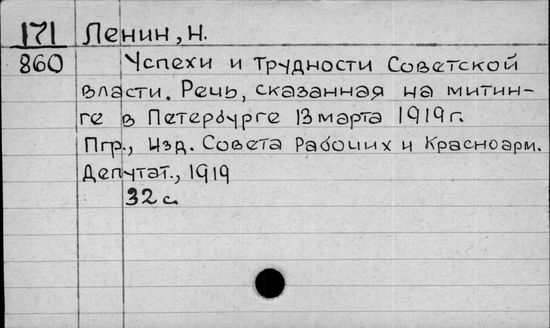 171 Ленин, Н.
860 Успехи и трудности Советской
власти. Речь, сказанная на митин-
ге в Петербурге 13 марта 1919 г.
Пгр., Изд. Совета Рабочих и Красноарм.
Депутат., 1919
32 с.